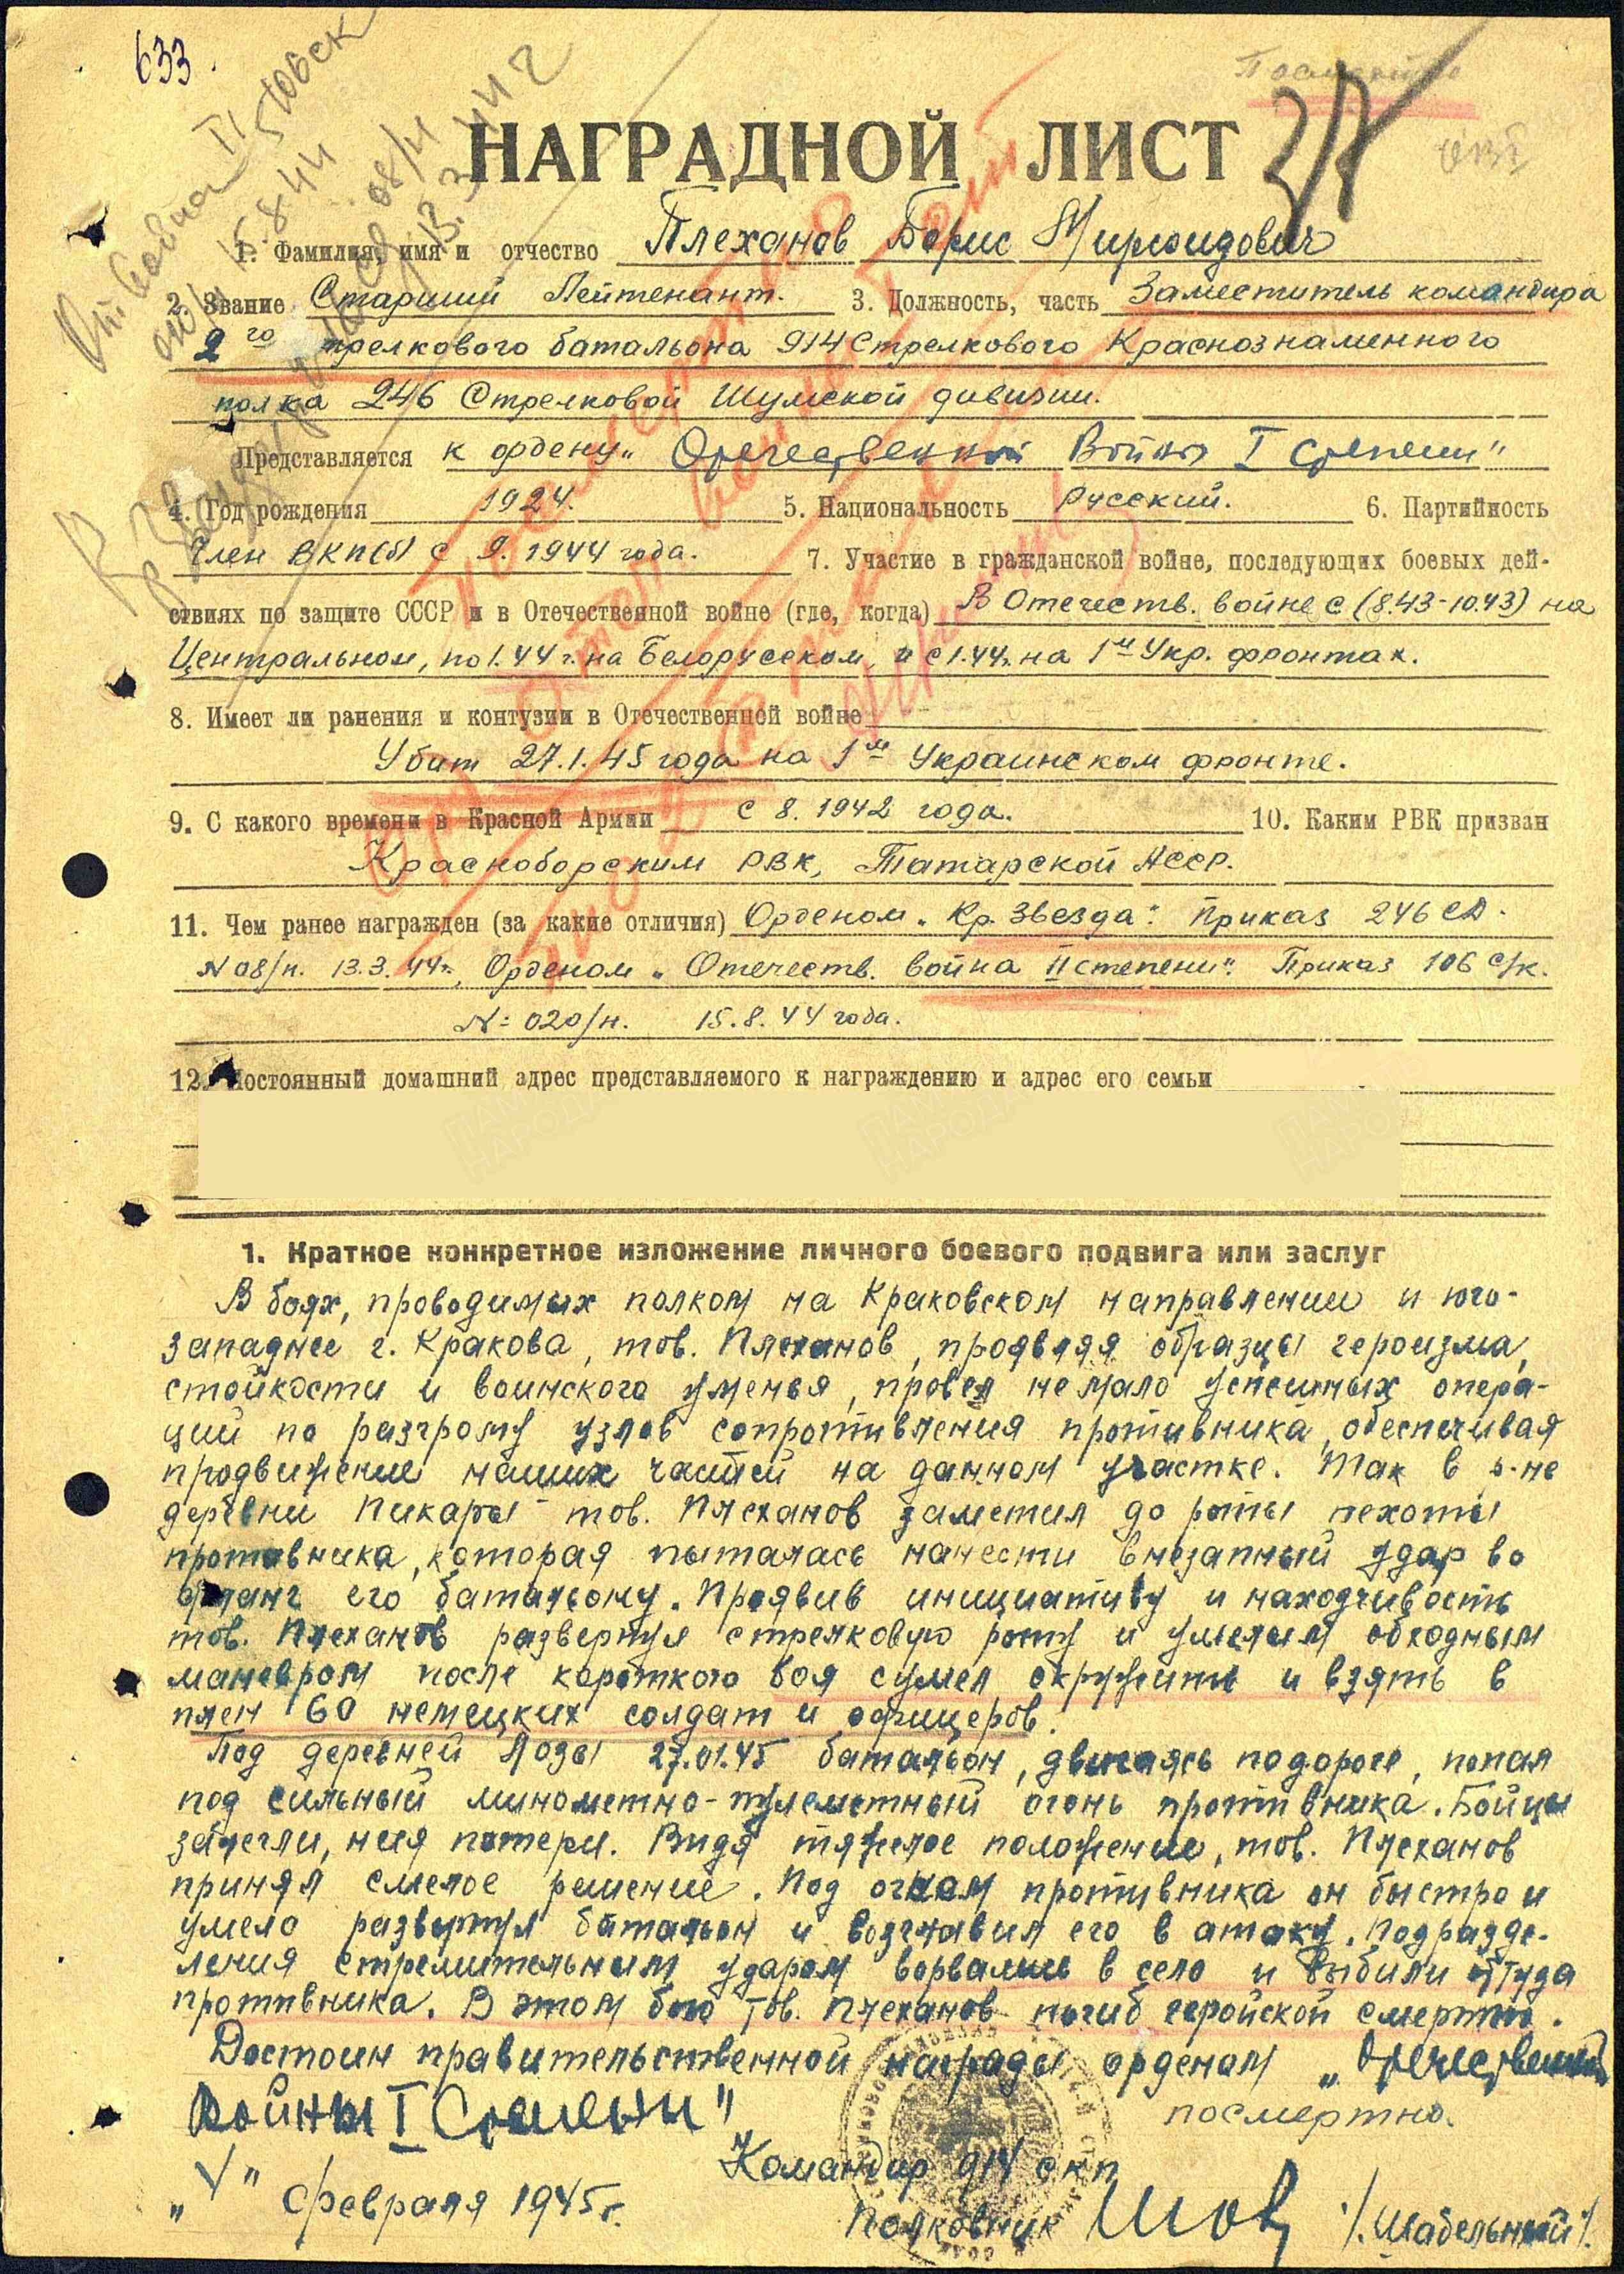 633.
Посмертно
НАГРАДНОЙ ЛИСТ
1. Фамилия, имя и отчество Плеханов Борис
2. Звание Старший Лейтенант. 3. Должность, часть Заместитель командира
2го стрелкового батальона 914 Стрелкового Краснознаменного
полка 246 Стрелковой Шумской дивизии.
Представляется к ордену „Отечественной Войны I степени"
4. Год рождения 1924. 5. Национальность Русский. 6. Партийность
Член ВКП(б) с 9.1944 года. 7. Участие в гражданской войне, последующих боевых дей-
ствиях по защите СССР и в Отечественной войне (где, когда) В Отечеств. войне с (8.43-10.43) на
Центральном, по 1.44 г. на Белорусском, и с 1.44г. на 1м Укр. фронтах.
8. Имеет ли ранения и контузии в Отечественной войне
Убит 27.1.45 года на 1м Украинском фронте.
9. С какого времени в Красной Армии с 8.1942 года. 10. Каким РВК призван
Красноборским РВК, Татарской АССР.
11. Чем ранее награжден (за какие отличия) Орденом „Кр. Звезда". Приказ 246 СД.
N 08/н. 13.3.44г., Орденом „Отечеств. война II степени". Приказ 106 с/к.
N= 020/н. 15.8.44 года.
12. Постоянный домашний адрес представляемого к награждению и адрес его семьи
1. Краткое конкретное изложение личного боевого подвига или заслуг
В боях, проводимых полком на Краковском направлении и юго-
западнее г. Кракова, тов. Плеханов, проявляя образцы героизма,
стойкости и воинского уменья, провел не мало успешных опера-
ций по разгрому узлов сопротивления противника, обеспечивая
продвижение наших частей на данном участке. Так в р-не
деревни Пикары тов. Плеханов заметил до роты пехоты
противника, которая пыталась нанести внезапный удар во
фланг его батальону. Проявив инициативу и находчивость
тов. Плеханов развернул стрелковую роту и умелым обходным
маневром после короткого боя сумел окружить и взять в
плен 60 немецких солдат и офицеров.
Под деревней Лозы 27.01.45 батальон, двигаясь по дороге, попал
под сильный минометно-пулеметный огонь противника. Бойцы
залегли, неся потери. Видя тяжелое положение, тов. Плеханов
принял смелое решение. Под огнем противника он быстро и
умело развернул батальон и возглавил его в атаку. Подразде-
ления стремительным ударом ворвались в село и выбили оттуда
противника. В этом бою тов. Плеханов погиб геройской смертью.
Достоин правительственной награды орденом „Отечественной
Войны I Степени"
посмертно.
Командир 914 скп
Полковник /Шабельный/.
„4" февраля 1945г.